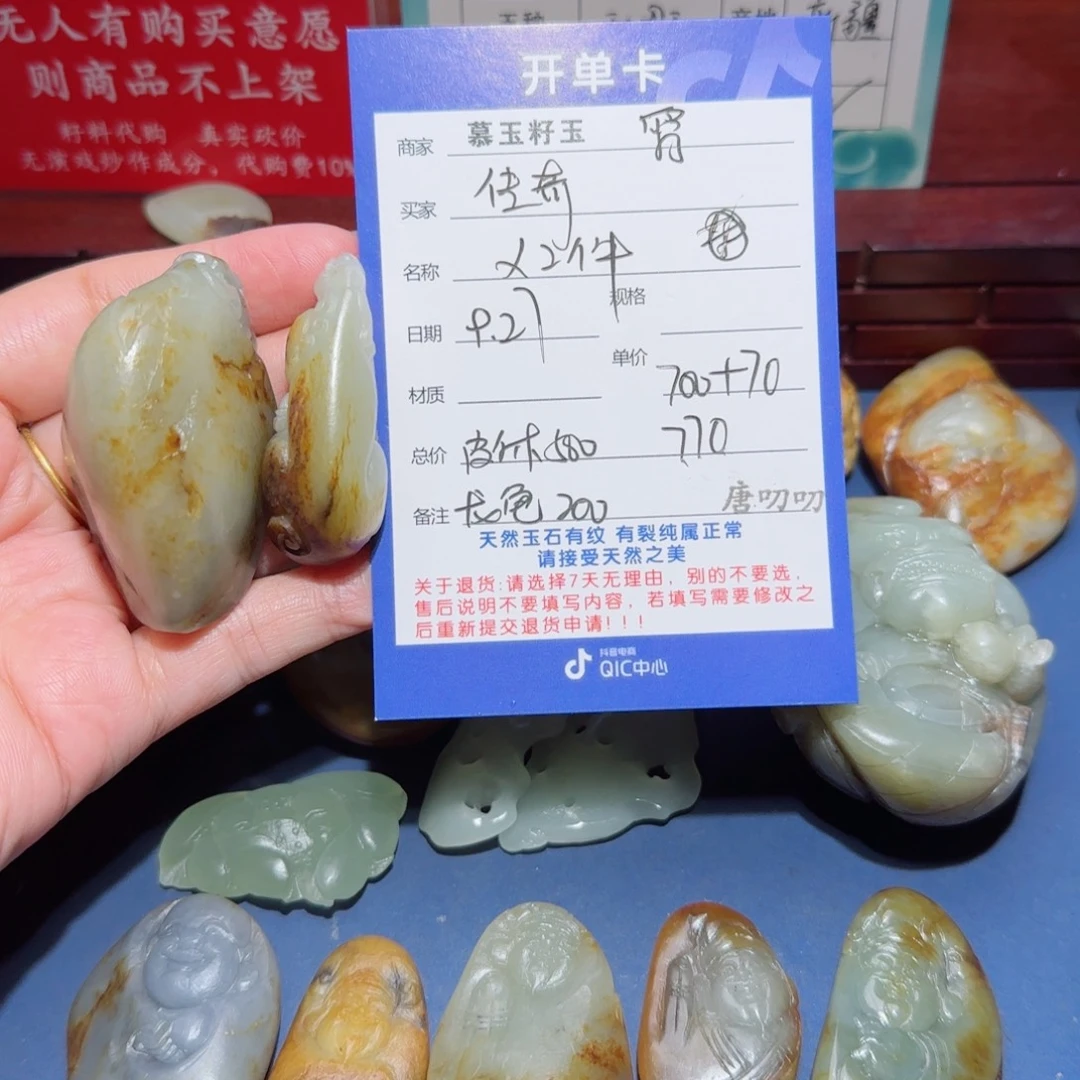 无人有购买意愿
则商品不上架
籽料代购 真实砍价
无演戏炒作成分，代购费10%
产地
开单卡
商家 慕玉籽玉
买家 传奇
名称 x2件
规格
日期 9.27
单价 700+70
材质
总价 770
备注 200 唐叨叨
天然玉石有纹 有裂纯属正常
请接受天然之美
关于退货:请选择7天无理由，别的不要选，
售后说明不要填写内容，若填写需要修改之
后重新提交退货申请!!!
抖音电商
QIC中心